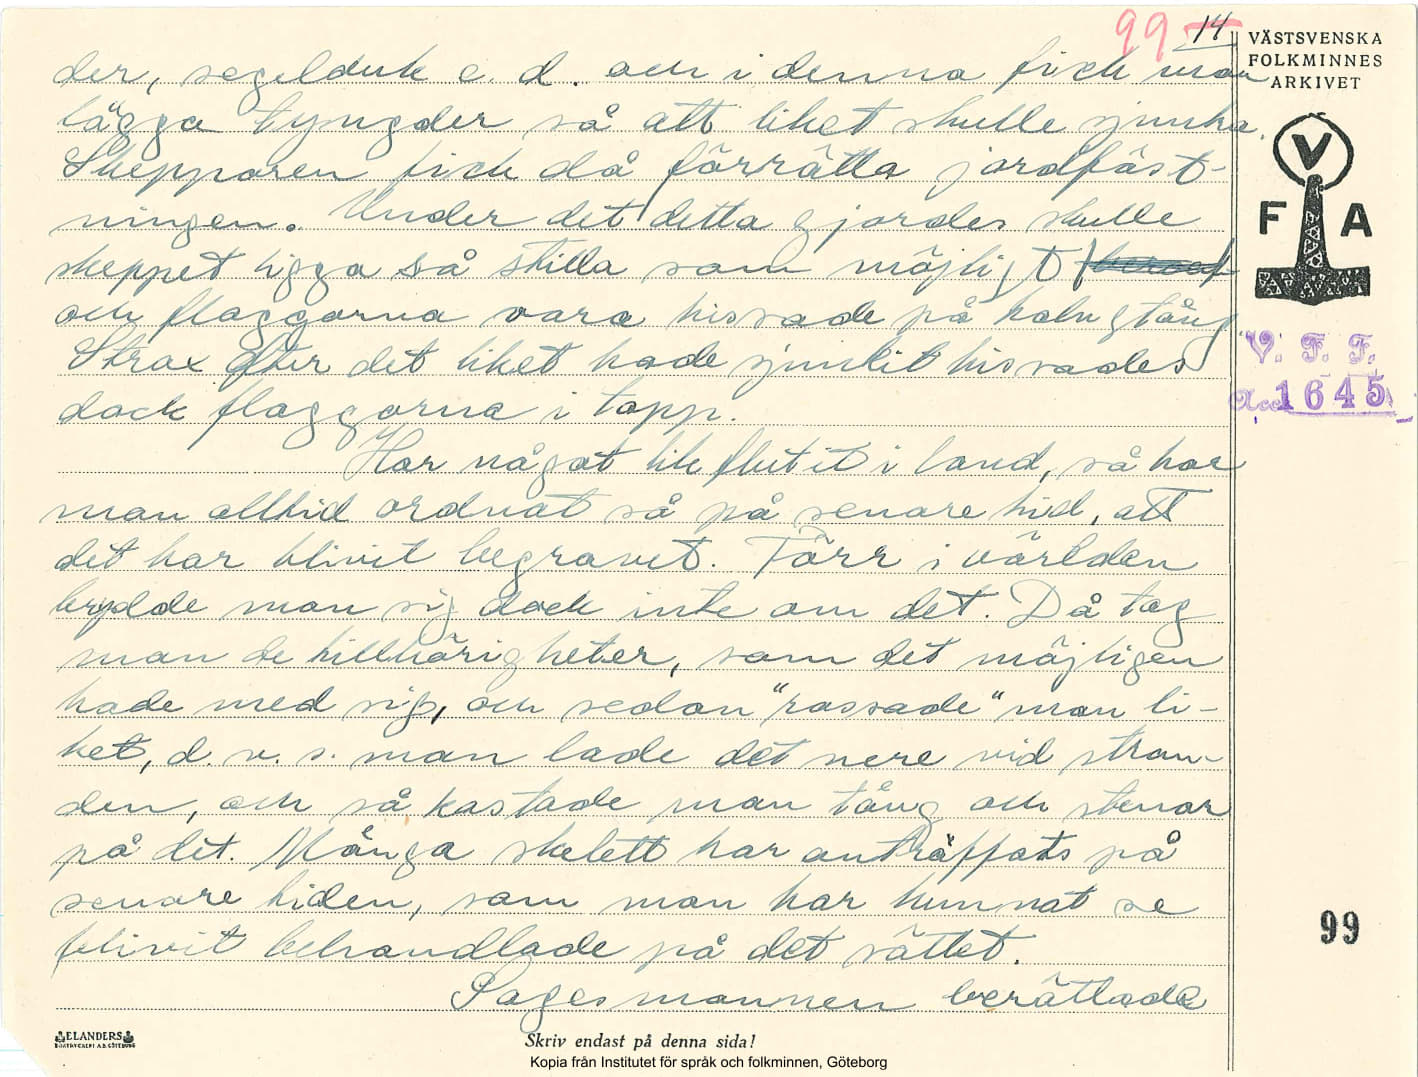 99 14
VÄSTSVENSKA
FOLKMINNES
ARKIVET
der, segelduk e. d. och i denna fick man
lägga tyngder så att liket skulle sjunka.
Skepparen fick då förrätta jordfäst-
ningen. Under det detta gjordes skulle
skeppet ligga så stilla som möjligt
och flaggorna vara hissade på halv stång
Strax efter det liket hade sjunkit hissades
dock flaggorna i topp.
Har något lik flutit i land, så har
man alltid ordnat så på senare tid, att
det har blivit begravet. Förr i världen
brydde man sig dock inte om det. Då tog
man de tillhörigheter, som det möjligen
hade med sig, och sedan "rassade" man li-
ket, d. v. s. man lade det nere vid stran-
den, och så kastade man tång och stenar
på det. Många skelett har anträffats på
senare tiden, som man har kunnat se
blivit behandlade på det sättet.
Sagesmannen berättade
V
F A
V. F. F.
Acc. 1645
99
ELANDERS
BOKTRYCKERI A.B. GÖTEBORG
Skriv endast på denna sida!
Kopia från Institutet för språk och folkminnen, Göteborg